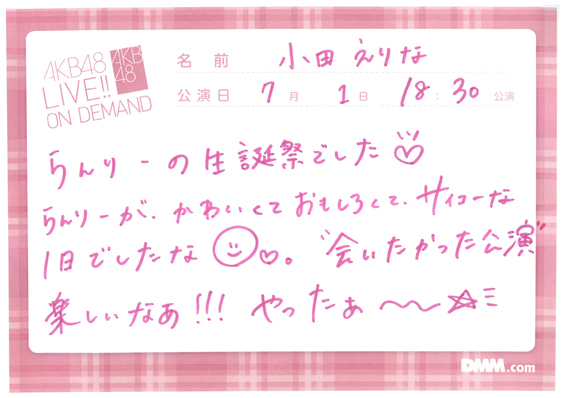 AKB48
LIVE!!
ON DEMAND
AKB
48
名 前 小田えりな
公演日 7月 1日 18:30 公演
らんりーの生誕祭でした♡
らんりーが、かわいくておもしろくて、サイコーな
1日でしたな☺♡。"会いたかった公演"
楽しいなあ!!! やったぁ〜〜☆彡
DMM.com